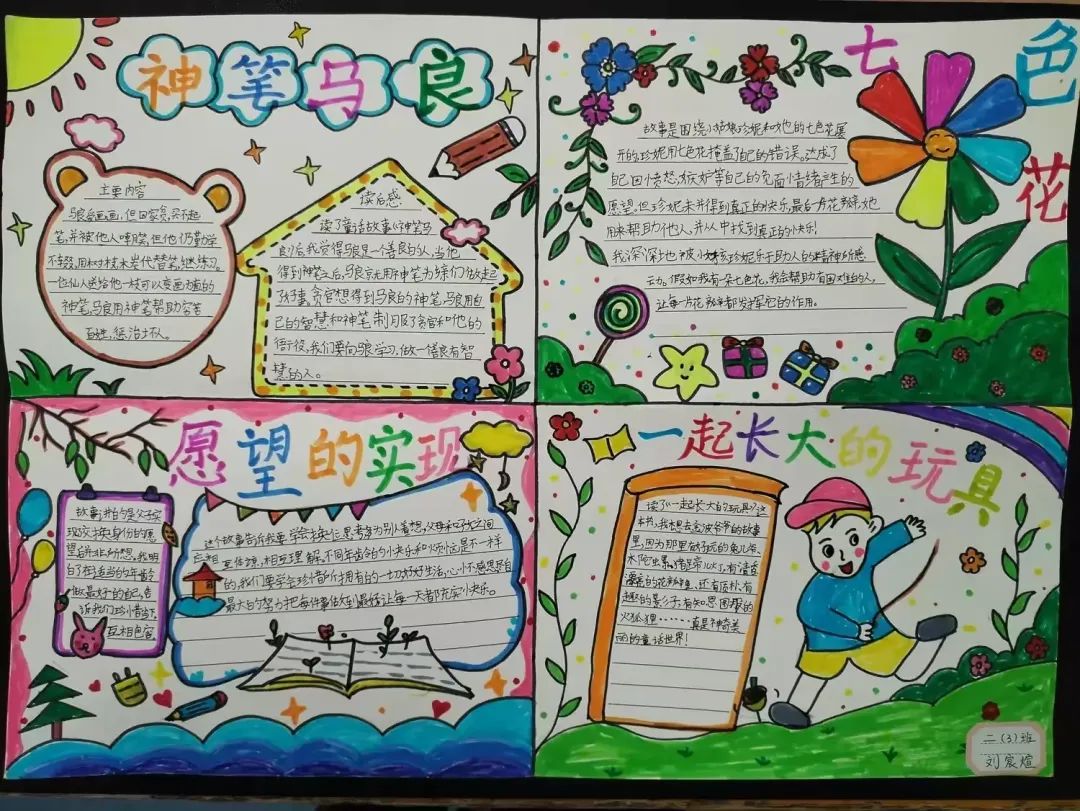 神笔马良
主要内容
马良爱画画,但因家贫,买不起
笔,并被他人嘲笑,但他仍勤学
不辍,用树枝木炭代替笔,继续练习。
一位仙人送给他一枝可以变画为真的
神笔,马良用神笔帮助穷苦
百姓,惩治坏人。
读后感
读了童话故事《神笔马
良》后,我觉得马良是一个善良的人,当他
得到神笔之后,马良就用神笔为穷人们做起
了好事。贪官想得到马良的神笔,马良用自
己的智慧和神笔制服了贪官和他的
衙役,我们要向马良学习,做一个善良有智
慧的人。
七色花
故事是围绕小姑娘珍妮和她的七色花展
开的,珍妮用七色花掩盖了自己的错误。达成了
自己因愤怒,嫉妒等自己的负面情绪产生的
愿望。但珍妮未并得到真正的快乐,最后一片花瓣,她
用来帮助他人,并从中找到真正的快乐!
我深深地被小姑娘珍妮乐于助人的精神所感
动。假如我有一朵七色花,我会帮助有困难的人,
让每一片花瓣都发挥它的作用。
愿望的实现
故事讲的是父子实
现交换身份的愿
望后并非所想,我明
白了在适当的年龄
做最好的自己,告
诉我们珍惜当下,
互相包容
这个故事告诉我要学会换位思考,多为别人着想,父母和子女之间
应相互体谅,相互理解。不同年龄的小快乐和烦恼是不一样
的,我们要学会珍惜所拥有的一切好好生活,心怀感恩,尽自
最大的努力把每件事做到最好,让每一天都充实小快乐。
一起长大的玩具
读了《一起长大的玩具》这
本书,我想去金波爷爷的故事
里,因为那里有好玩的兔儿爷、
木陀虫、猪尾帚以及有清香
漂亮的花瓣儿,还有质朴、有
趣的影子,有知恩图报的
火狐狸········真是神奇美
丽的童话世界!
二(3)班
刘宸煊